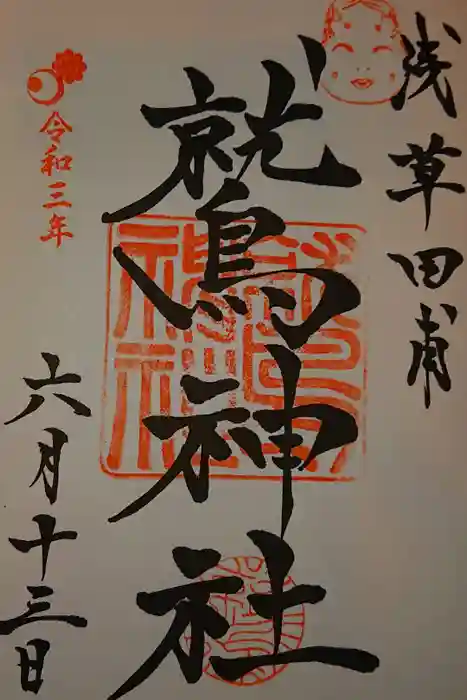 浅草田甫
鷲神社
令和三年
六月十三日